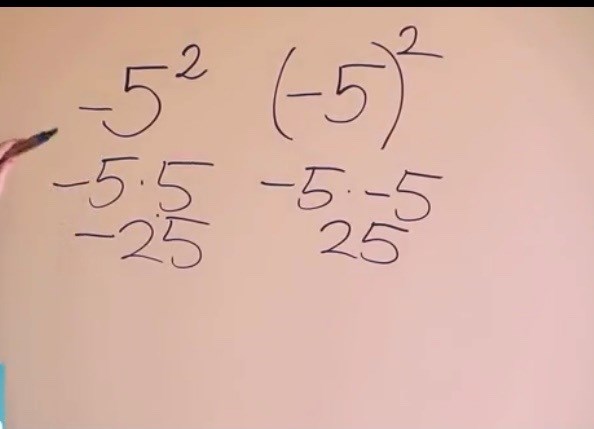 -5² (-5)²
-5·5 -5·-5
-25 25